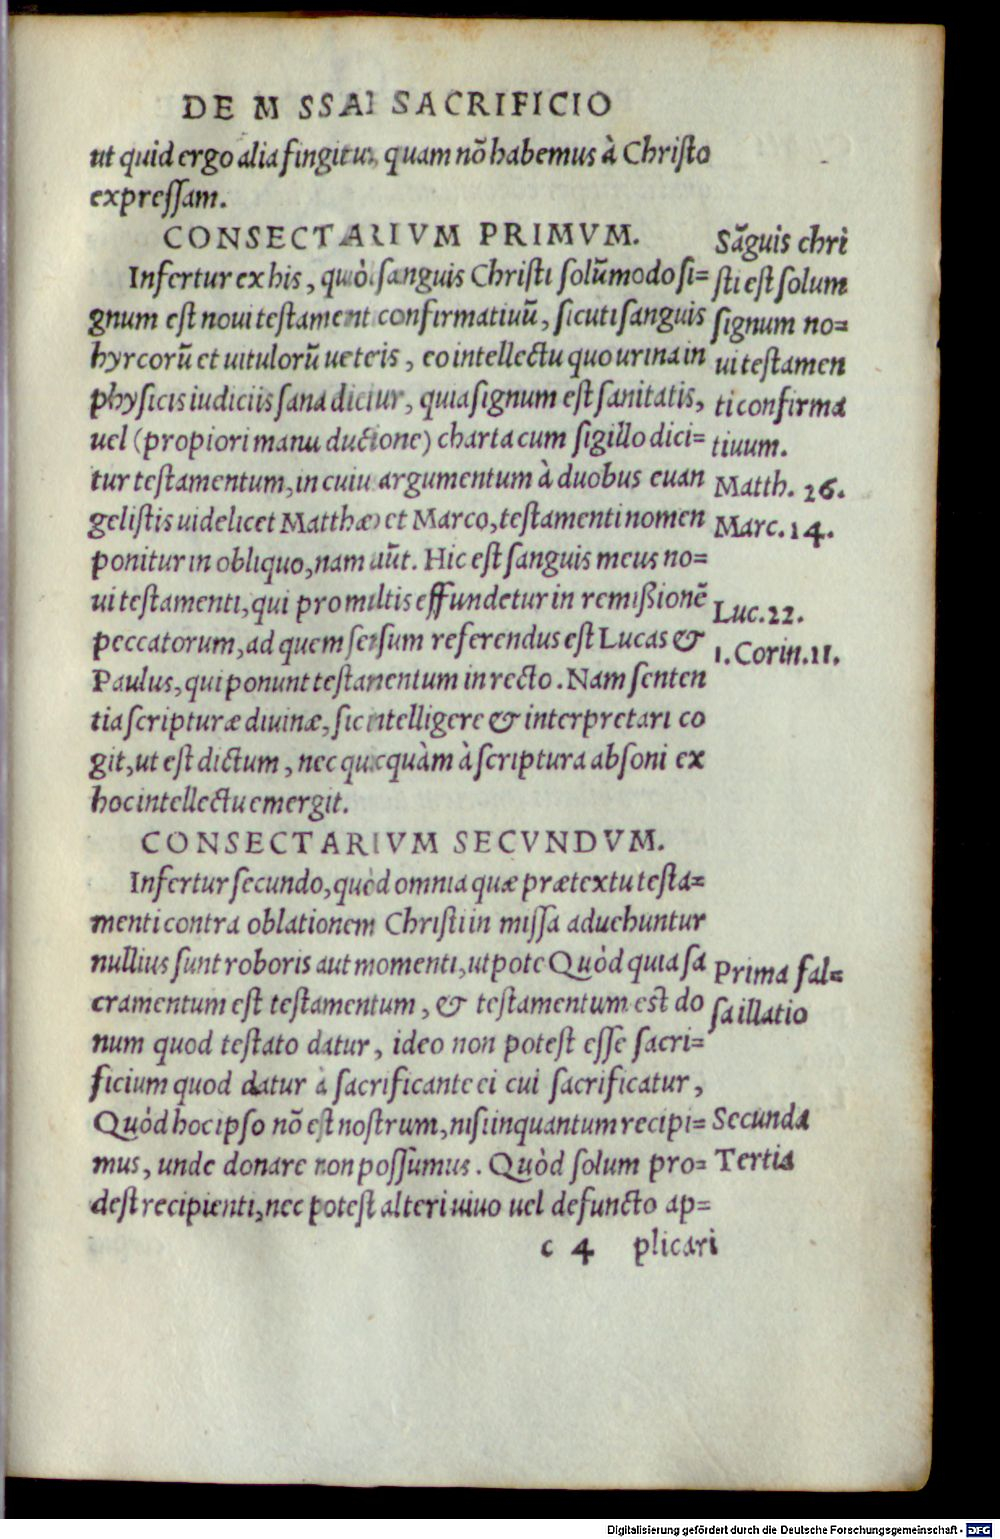 DE M SSAE SACRIFICIO
ut quid ergo alia fingitur, quam nō habemus à Christo
expressam.
CONSECTARIVM PRIMVM.
Infertur ex his, quòd sanguis Christi solūmodo si=
gnum est noui testamenti confirmatiuū, sicuti sanguis
hyrcorū et uitulorū ueteris, eo intellectu quo urina in
physicis iudiciis sana dicitur, quia signum est sanitatis,
uel (propiori manu ductione) charta cum sigillo dici=
tur testamentum, in cuius argumentum à duobus euan
gelistis uidelicet Matthæo et Marco, testamenti nomen
ponitur in obliquo, nam aūt. Hic est sanguis meus no=
ui testamenti, qui pro multis effundetur in remißionē
peccatorum, ad quem sensum referendus est Lucas &
Paulus, qui ponunt testamentum in recto. Nam senten
tia scripturæ diuinæ, sic intelligere & interpretari co
git, ut est dictum, nec quicquàm à scriptura absoni ex
hoc intellectu emergit.
CONSECTARIVM SECVNDVM.
Infertur secundo, quòd omnia quæ prætextu testa=
menti contra oblationem Christi in missa aduehuntur
nullius sunt roboris aut momenti, utpote Quòd quia sa
cramentum est testamentum, & testamentum est do
num quod testato datur, ideo non potest esse sacri=
ficium quod datur à sacrificante ei cui sacrificatur,
Quòd hoc ipso nō est nostrum, nisi inquantum recipi=
mus, unde donare non possumus. Quòd solum pro=
dest recipienti, nec potest alteri uiuo uel defuncto ap=
c 4 plicari
Sāguis chri
sti est solum
signum no=
ui testamen
ti confirma
tiuum.
Matth. 26.
Marc. 14.
Luc. 22.
1. Corin. 11.
Prima fal=
sa illatio
Secunda
Tertia
Digitalisierung gefördert durch die Deutsche Forschungsgemeinschaft - DFG